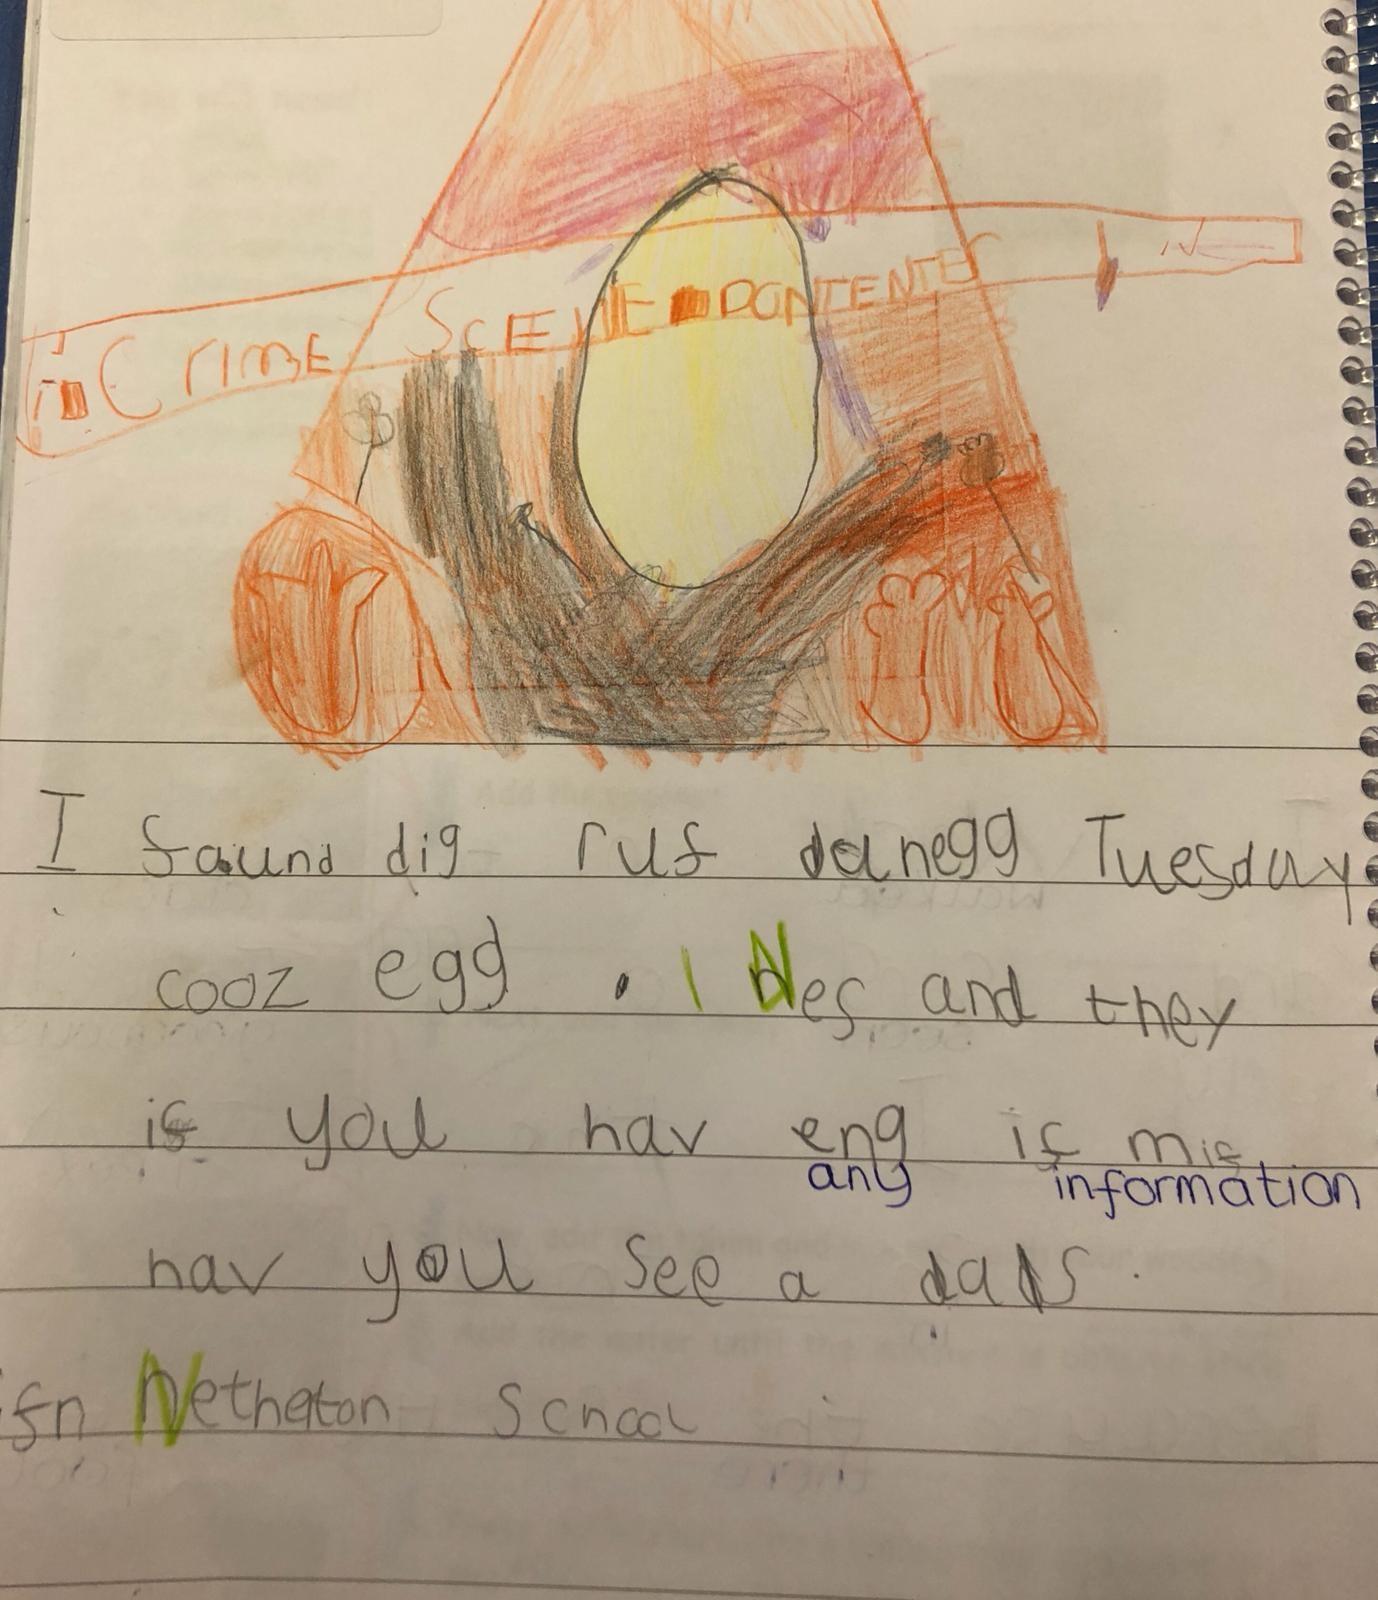 CRIME SCENE DONTENTER
I faund dig ruf danegg Tuesday
cooz egg . I Nes and they
if you hav eng if mis
any information
hav you see a dads.
ifn Netheton School